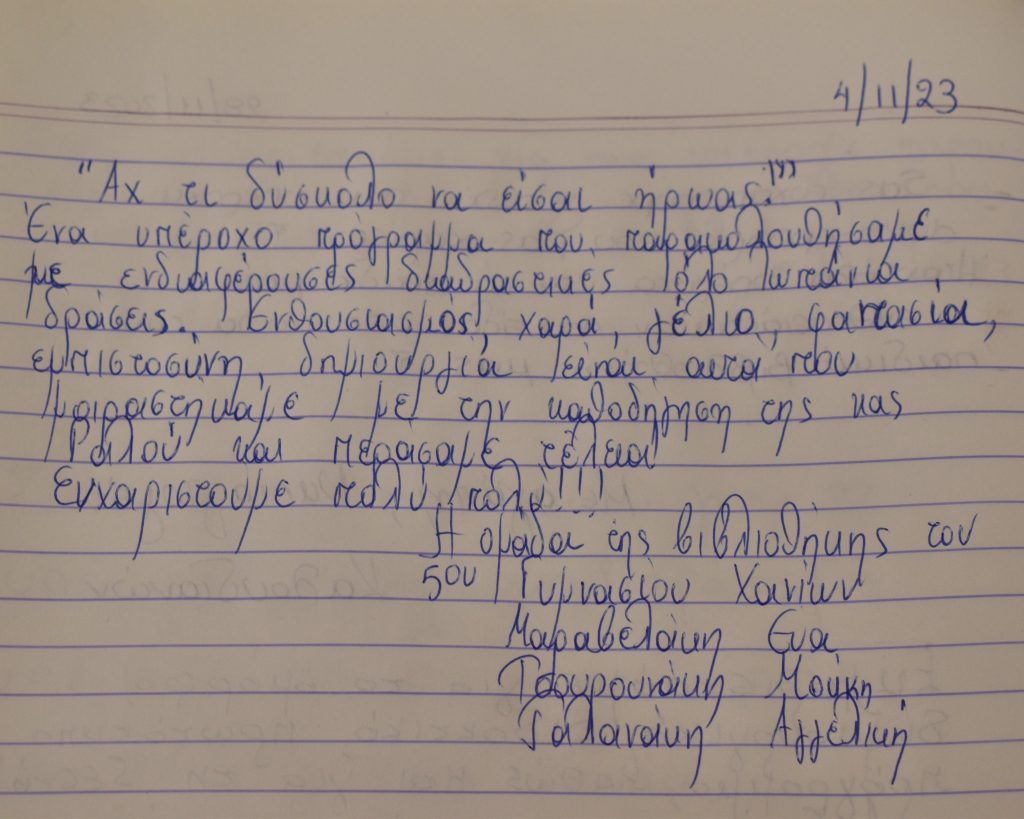 4/11/23
"Αχ τι δύσκολο να είσαι ήρωας!"
Ένα υπέροχο πρόγραμμα που παρακολουθήσαμε
με ενδιαφέρουσες διαδραστικές όλο ζωντάνια
δράσεις. Ενθουσιασμός, χαρά, γέλιο, φαντασία,
εμπιστοσύνη, δημιουργία είναι αυτά που
μοιραστήκαμε με την καθοδήγηση της κας
Ραλλού και περάσαμε τέλεια
Ευχαριστούμε πολύ πολύ!!!
Η ομάδα της βιβλιοθήκης του
5ου Γυμνασίου Χανίων
Μαραβελάκη Εύα
Τσουρουνάκη
Γαλανάκη Αγγελική